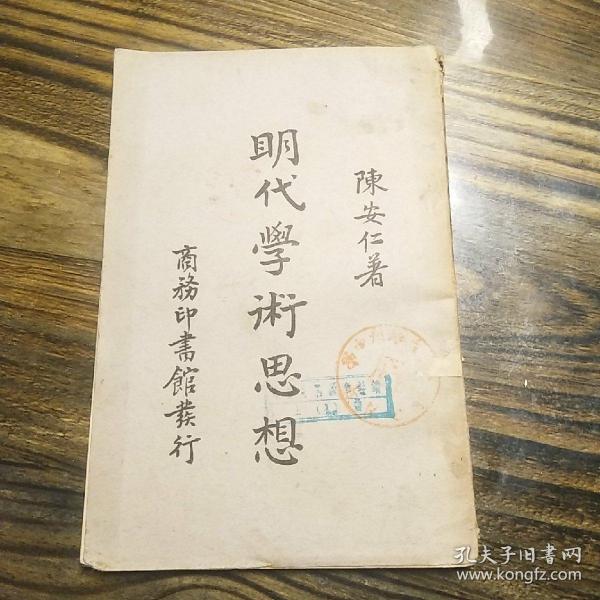 陳安仁著
明代學術思想
商務印書館發行
孔夫子旧书网
www.kongfz.com